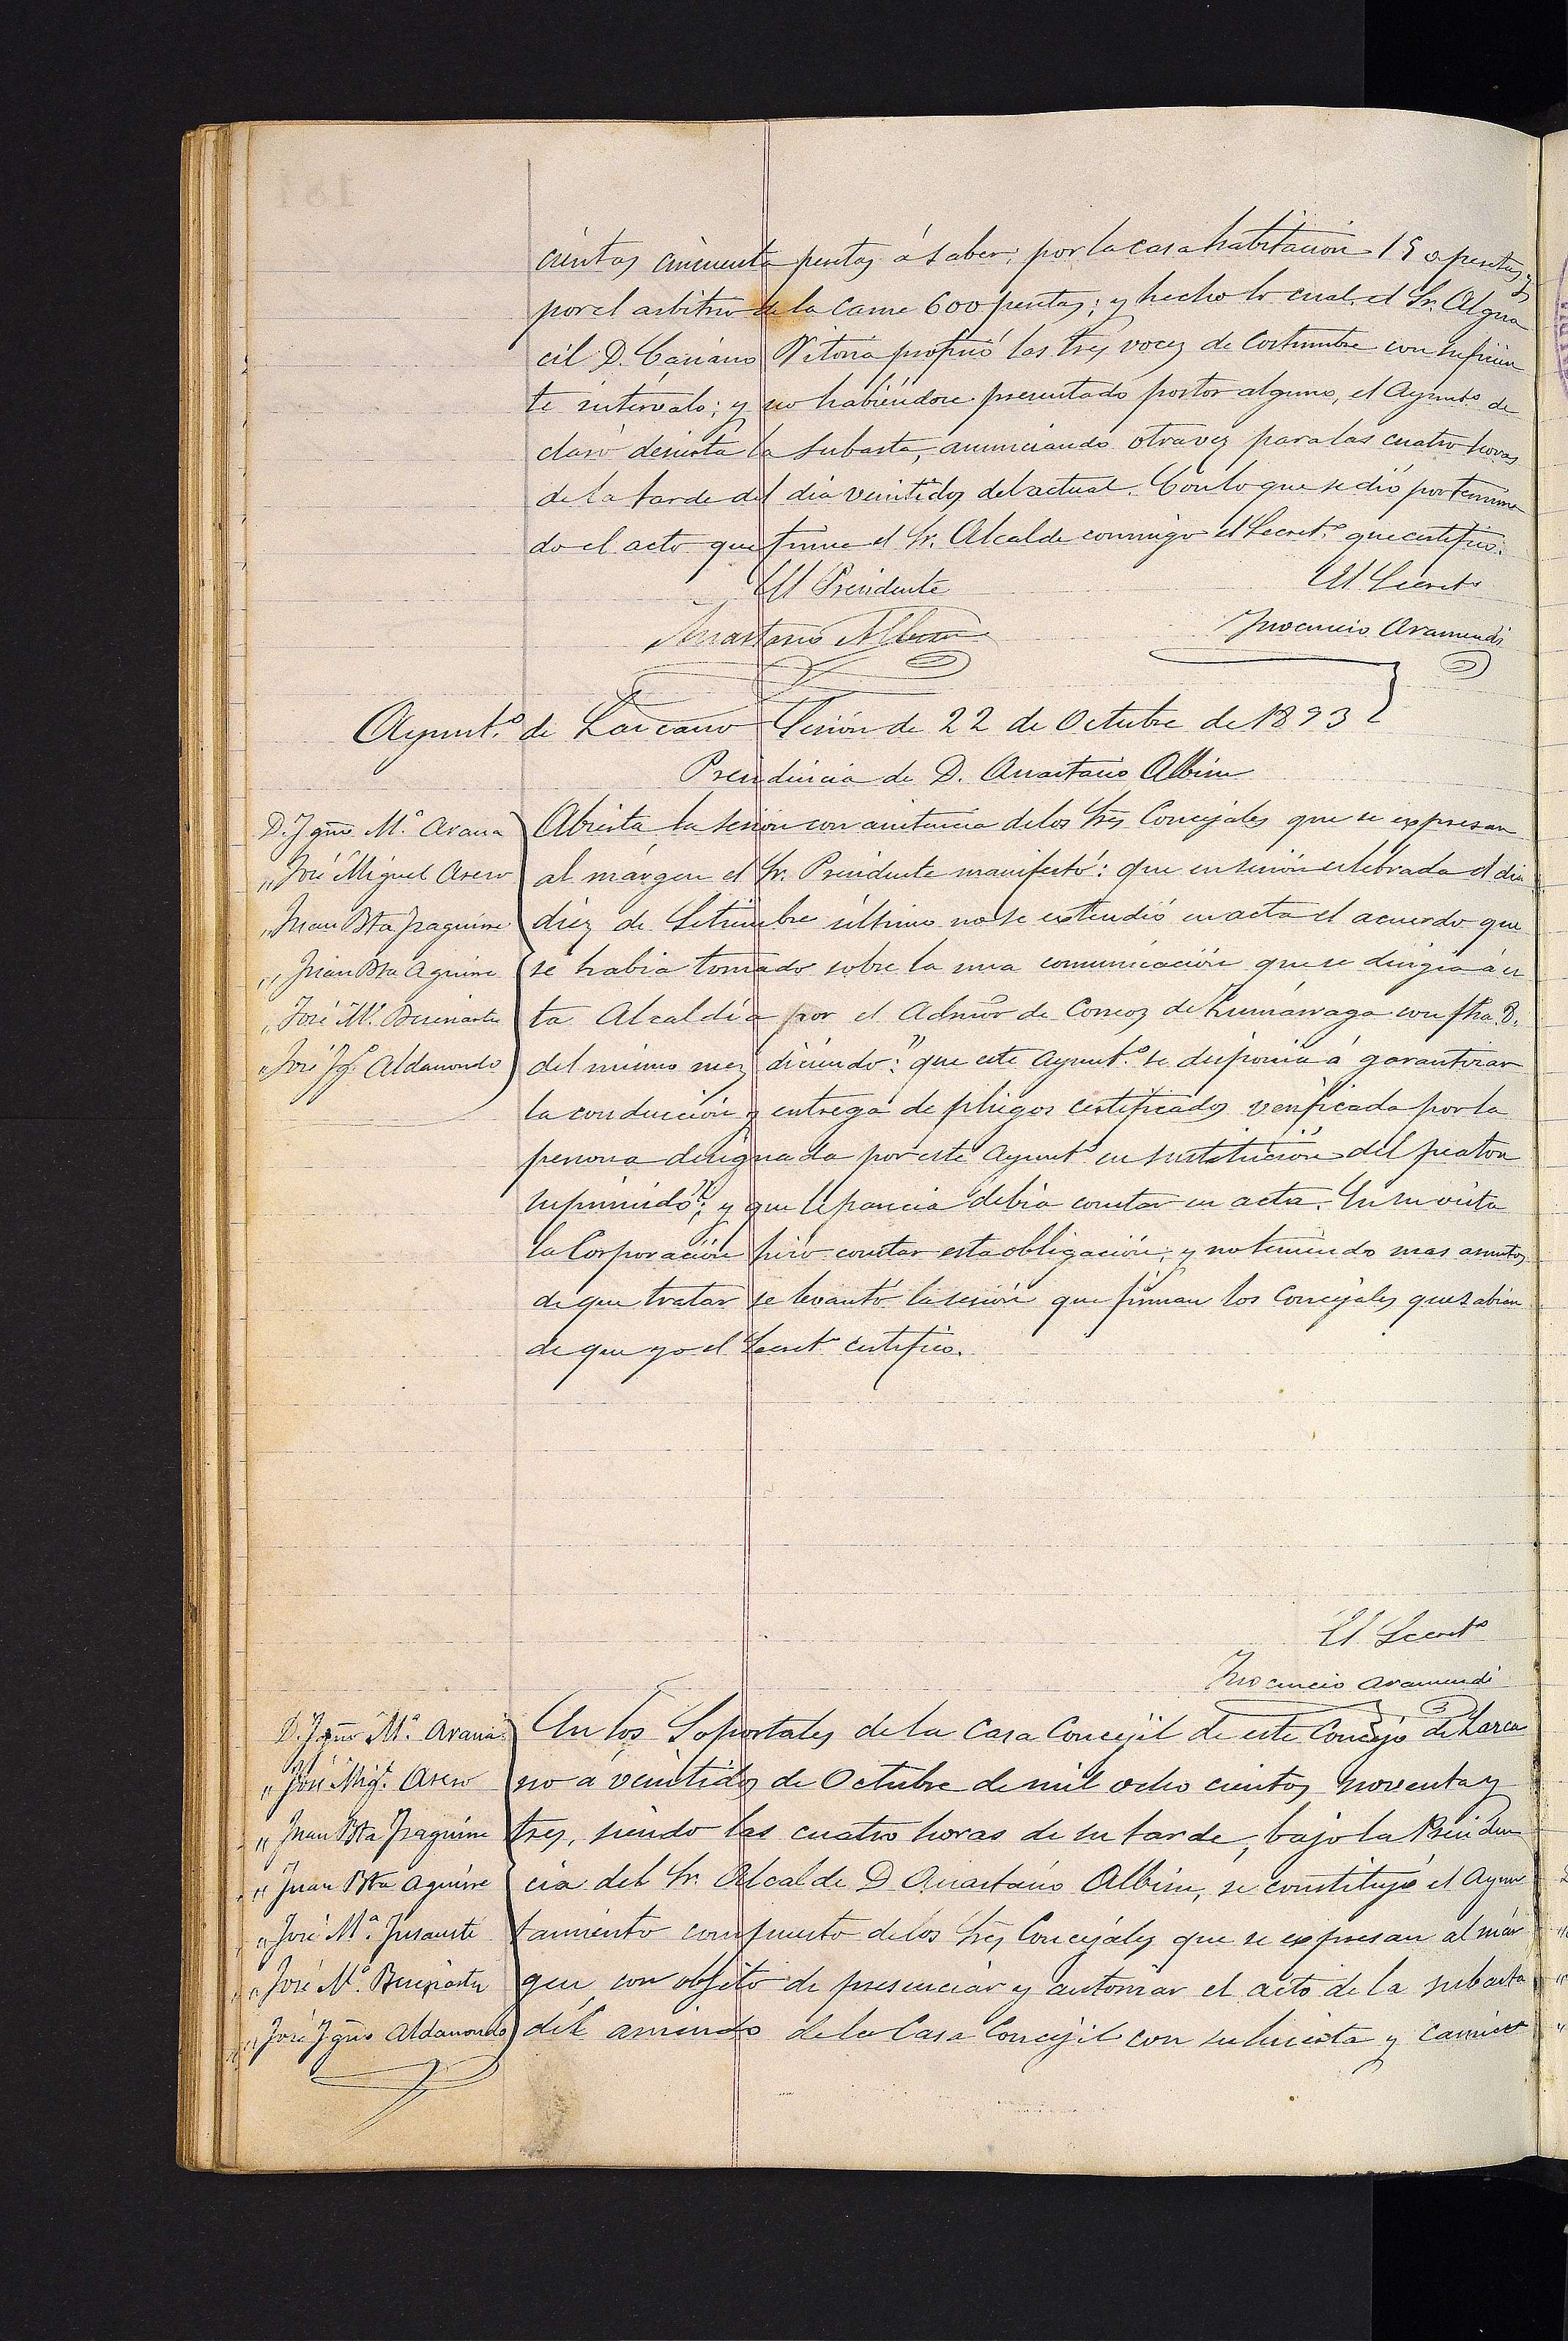 cientas cincuenta pesetas á saber: por la casa habitacion 150 pesetas y
por el arbitrio de la carne 600 pesetas; y hecho lo cual, el Sr. Algua
cil D. Casiano Vitoria profirió las tres voces de costumbre con suficien
te intérvalo; y no habiéndose presentado postor alguno, el Ayunt.º de
claró desierta la subasta, anunciando otra vez para las cuatro horas
de la tarde del dia veintidos del actual. Con lo que se dió por termina
do el acto que firma el Sr. Alcalde conmigo el Secret.º que certifico.
El Presidente El Secret.º
Anastasio Albisu Inocencio Aramendi
Ayunt.º de Lazcano Sesión de 22 de Octubre de 1893
Presidencia de D. Anastasio Albisu
D. Ign.º M.ª Arana
" José Miguel Asero
" Juan Bta Izaguirre
" Juan Bta Aguirre
" José M.ª
" José Ig.º Aldanondo
Abierta la sesión con asistencia de los Sres Concejales que se expresan
al márgen el Sr. Presidente manifestó: que en sesión celebrada el dia
diez de Setiembre último no se estendió en acta el acuerdo que
se habia tomado sobre la una comunicación que se dirigia á es
ta Alcaldía por el Admor de Correos de Zumárraga con fha 3,
del mismo mes diciendo: "que este Ayunt.º se disponia á garantizar
la conducción y entrega de pliegos certificados verificada por la
persona designada por este Ayunt.º en sustitución del peaton
suprimido"; y que le parecia debia constar en acta. En su vista
la Corporación hizo constar esta obligación; y no teniendo mas asuntos
de que tratar se levantó la sesión que firman los Concejales que sabian
de que yo el Secret.º certifico.
El Secret.º
Inocencio Aramendi
D. Ign.º M.ª Arana
" José Mig.l Asero
" Juan Bta Izaguirre
" Juan Bta Aguirre
" José M.ª
" José M.ª
" José Ign.º Aldanondo
En los Soportales de la Casa Concejil de este Concejo de Lazca
no á veintidos de Octubre de mil ocho cientos noventa y
tres, siendo las cuatro horas de su tarde, bajo la Presiden
cia del Sr. Alcalde D Anastasio Albisu, se constituyó el Ayun
tamiento compuesto de los Sres Concejales que se expresan al már
gen, con objeto de presenciar y autorizar el acto de la subasta
del arriendo de la Casa Concejil con su huerta y